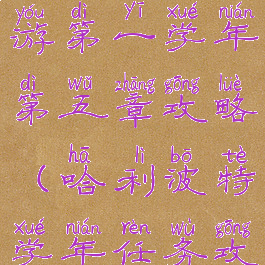 yóu dì yī xué nián
游第一学年
dì wǔ zhāng gōng lüè
第五章攻略
hā lì bō tè
（哈利波特
xué nián rèn wù gōng
学年任务攻